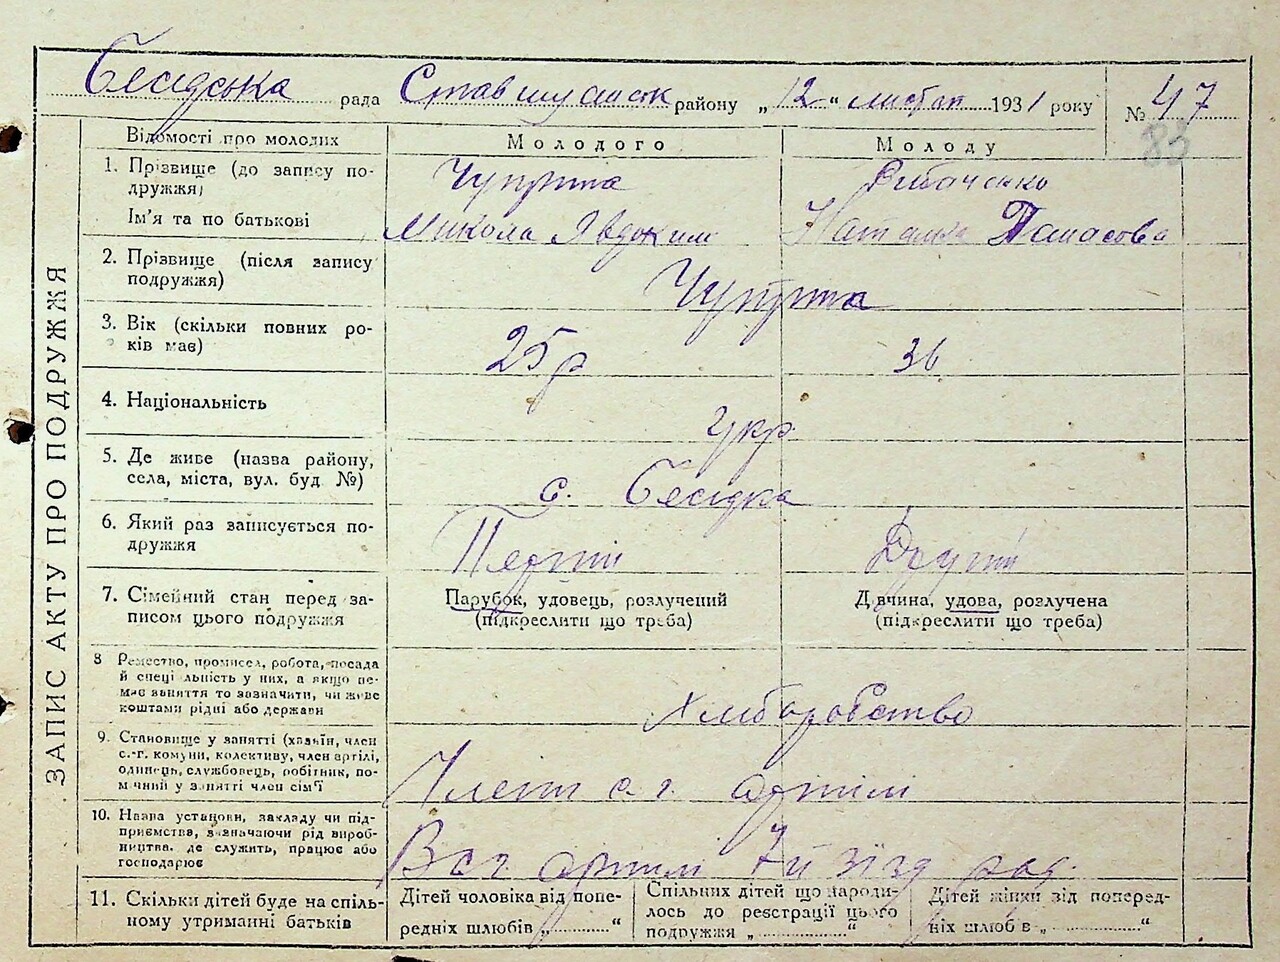 Бесідська рада Ставищанськ району „12“ листоп 1931 року № 47
83
ЗАПИС АКТУ ПРО ПОДРУЖЖЯ
Відомості про молодих Молодого Молоду
1. Прізвище (до запису по-
дружжя)
Чуприна
Ім'я та по батькові
Микола Явдоким Наталка Панасова
2. Прізвище (після запису
подружжя)
Чуприна
3. Вік (скільки повних ро-
ків має)
25 р 36
4. Національність
укр.
5. Де живе (назва району,
села, міста, вул. буд №)
с. Бесідка
6. Який раз записується по-
дружжя
Перший Другий
7. Сімейний стан перед за-
писом цього подружжя
Парубок, удовець, розлучений
(підкреслити що треба)
Дівчина, удова, розлучена
(підкреслити що треба)
8 Ремество, промисел, робота, посада
й спеціальність у них, а якщо не-
має заняття то зазначити, чи живе
коштами рідні або держави
Хліборобство
9. Становище у занятті (хазяїн, член
с.-г. комуни, колективу, член артілі,
одинець, службовець, робітник, по-
мічний у занятті член сім'ї
Члени с. г. артілі
10. Назва установи, закладу чи під-
приємства, зазначаючи рід вироб-
ництва, де служить, працює або
господарює
В с г артілі 7й зїзд рад.
11. Скільки дітей буде на спіль-
ному утриманні батьків
Дітей чоловіка від попе-
редніх шлюбів „..........“
Спільних дітей що народи-
лось до реєстрації цього
подружжя „..........“
Дітей жінки від поперед-
ніх шлюбів „..........“